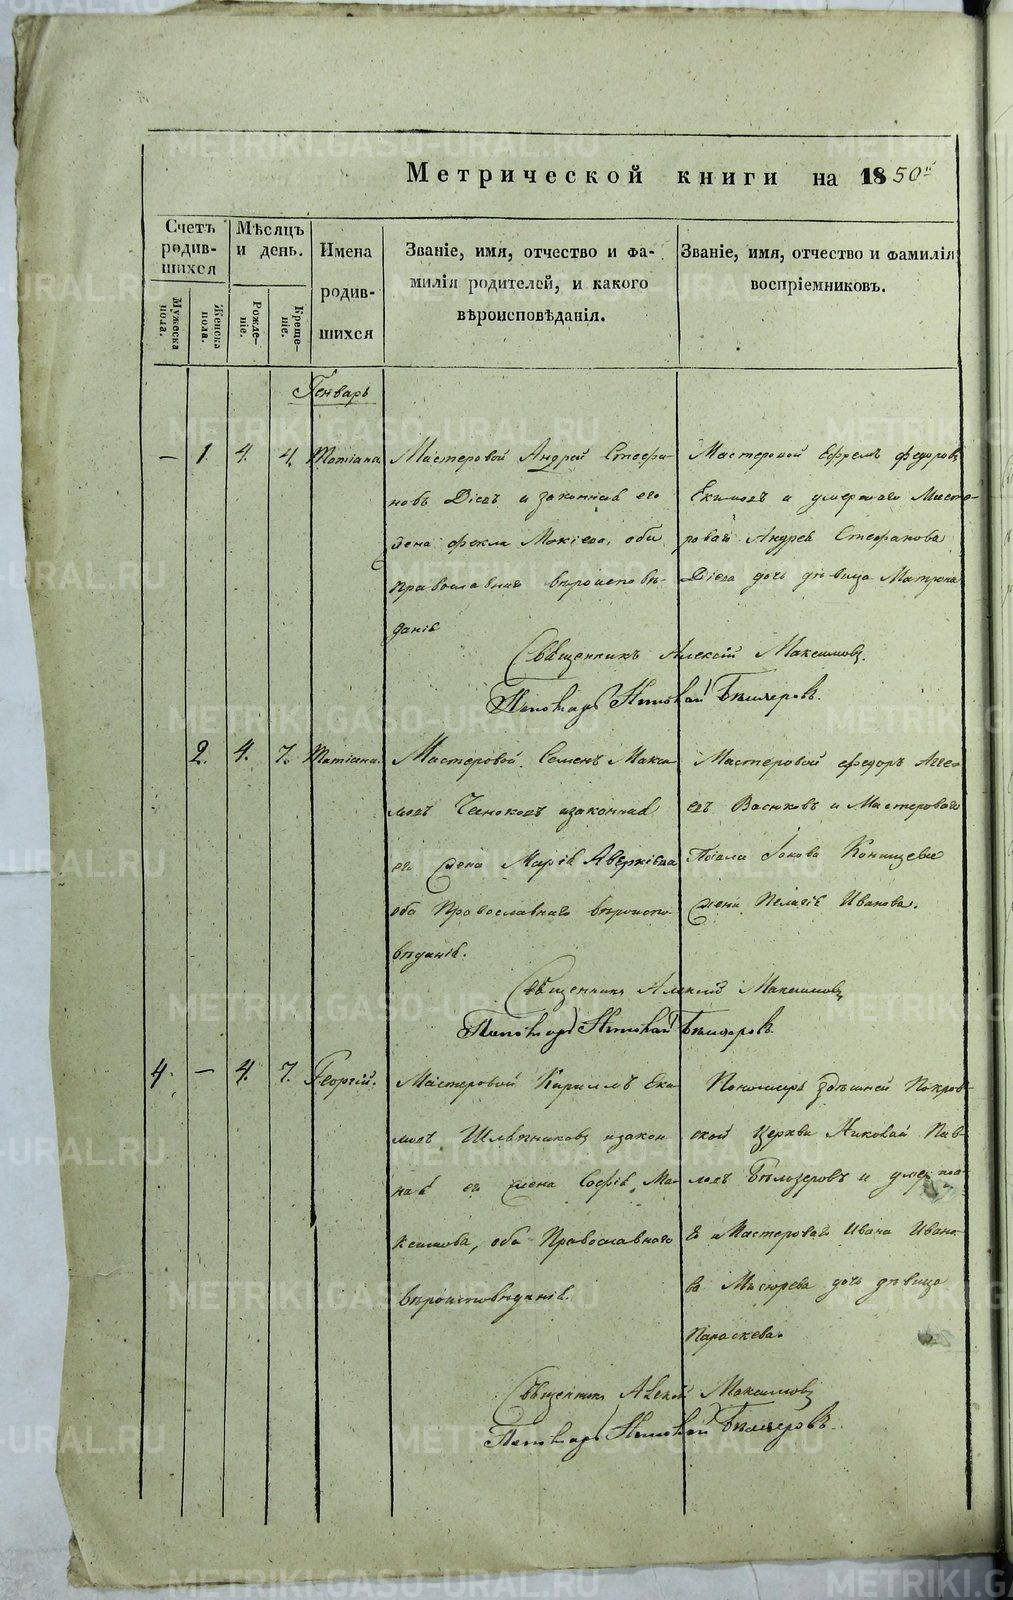 Метрической книги на 1850й
Счетъ родив-шихся
Мѣсяцъ и день.
Имена родив-шихся
Званіе, имя, отчество и фа-
милія родителей, и какого
вѣроисповѣданія.
Званіе, имя, отчество и фамилія
воспріемниковъ.
Мужеска пола.
Женска пола.
Рожде-ніе.
Креще-ніе.
Генварь
— 1. 4. 4. Татіана
Мастеровой Андрей Стефа-
новъ Діевъ и законная его
жена Фекла Мокіева, оба
православнаго вѣроисповѣ-
данія
Мастеровой Ефремъ Федоровъ
Екимовъ и умершаго Масте-
роваго Андрея Стефанова
Діева дочь дѣвица Матрона
Священникъ Алексій Максимовъ.
Пономарь Николай Бѣлозеровъ.
2. 4. 7. Татіана.
Мастеровой Семенъ Макси-
мовъ и законная
его жена Марія Аверкіева
оба Православнаго вѣроиспо-
вѣданія.
Мастеровой Федоръ
евъ Васюковъ и Мастероваго
Павла Іонова
жена Пелагія Иванова.
Священникъ Алексій Максимовъ
Пономарь Николай Бѣлозеровъ
4. — 4. 7. Георгій.
Мастеровой Кириллъ Еки-
мовъ и закон-
ная его жена Софія Ма-
ксимова, оба Православнаго
вѣроисповѣданія.
Пономарь здѣшней Покров-
ской церкви Николай Пав-
ловъ Бѣлозеровъ и умерша-
го Мастероваго Ивана Ивано-
ва Мисюрева дочь дѣвица
Параскева.
Священникъ Алексій Максимовъ
Пономарь Николай Бѣлозеровъ.
METRIKI.GASO-URAL.RU